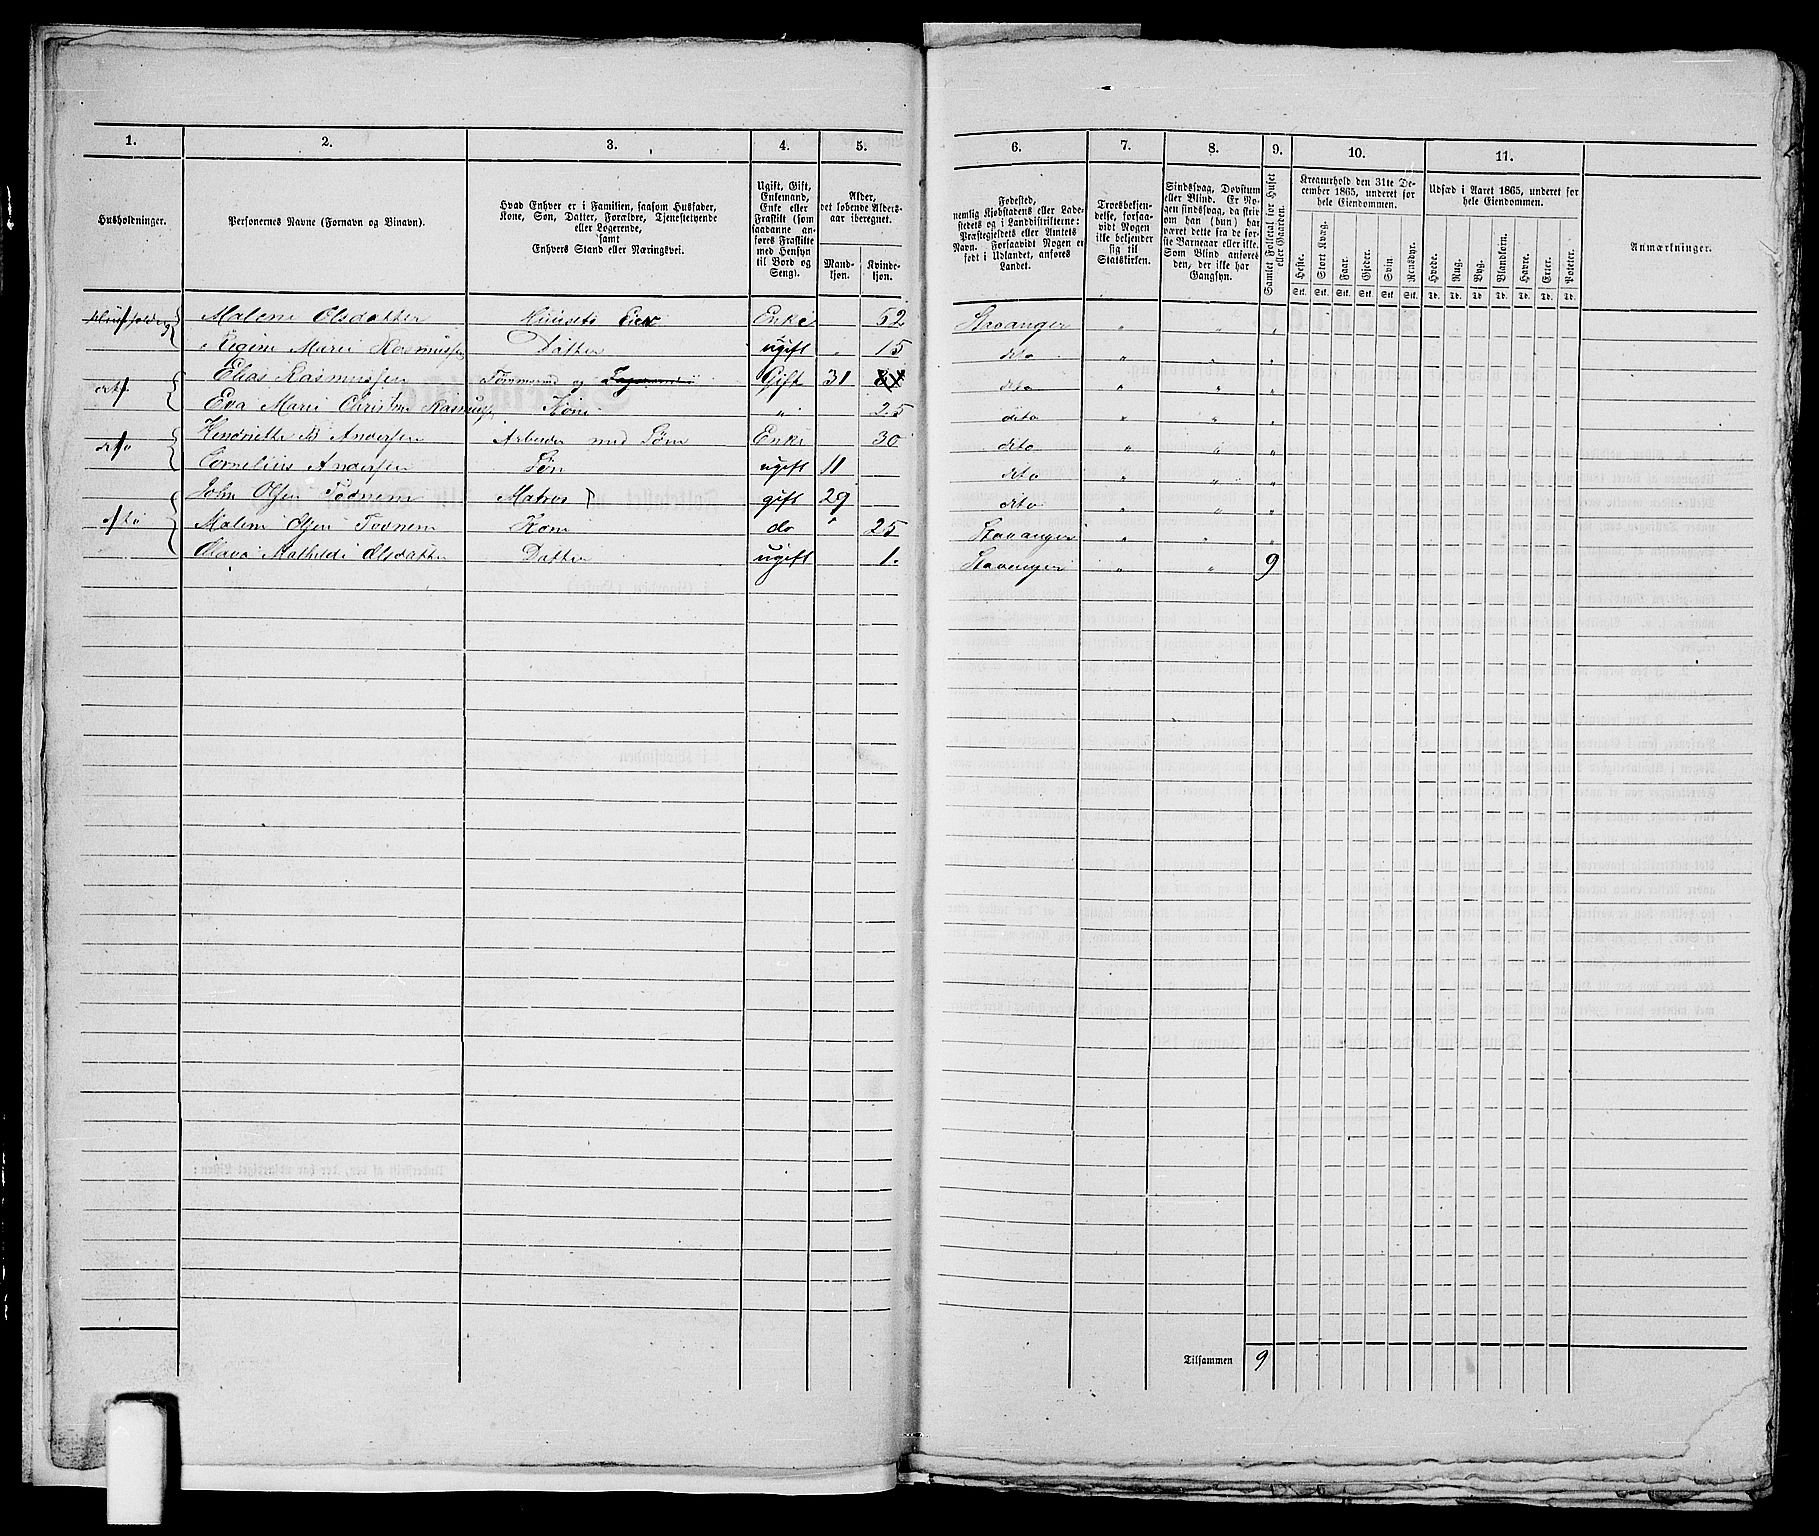 1. 2. 3. 4. 5. 6. 7. 8. 9. 10. 11.
Husholdninger.
Personernes Navne (Fornavn og Binavn).
Hvad Enhver er i Familien, saasom Husfader,
Kone, Søn, Datter, Forældre, Tjenestetyende
eller Logerende,
samt
Enhvers Stand eller Næringsvei.
Ugift, Gift,
Enkemand,
Enke eller
Fraskilt (som
saadanne an-
føres Fraskilte
med Hensyn
til Bord og
Seng).
Alder,
det løbende Alders-
aar iberegnet.
Mand-
kjøn.
Kvinde-
kjøn.
Fødested,
nemlig Kjøbstadens eller Lade-
stedets og i Landdistrikterne:
Præstegjeldets eller Amtets
Navn. Forsaavidt Nogen er
født i Udlandet, anføres
Landet.
Troesbekjen-
delse, forsaa-
vidt Nogen
ikke bekjender
sig til
Statskirken.
Sindssvag, Døvstum
eller Blind. Er No-
gen sindssvag, da skri-
ves om han (hun) har
været dette fra de før-
ste Barneaar eller ikke.
Som Blind anføres
den, der ikke har
Gangsyn.
Samlet Folketal for Huset
eller Gaarden.
Kreaturhold den 31te De-
cember 1865, underet for
hele Eiendommen.
Heste. Stort Kvæg. Faar. Gjeder. Svin. Rensdyr.
Stk. Stk. Stk. Stk. Stk. Stk.
Udsæd i Aaret 1865, underet for
hele Eiendommen.
Hvede. Rug. Byg. Blandkorn. Havre. Erter. Poteter.
Td. Td. Td. Td. Td. Td. Td.
Anmærkninger.
Malene Olsdatter Huusets Eier Enke 62 Stavanger " " "
Regine Marie Rasmussen Datter ugift " 15 dito " " "
Elias Rasmussen Tømmermd og Gift 31 dito " " "
Eva Marie Christine Rasmussen Kone " 25 dito " " "
dito Hendriette B Andersen Arbeider med Søm Enke 30 dito " " "
Cornelius Andersen Søn ugift 11 dito " " "
John Olsen Todnem Matros gift 29 dito " " "
dito Malene Olsen Todnem Kone do " 25 Stavanger " " "
Olava Mathilde Olsdatter Datter ugift 1. Stavanger " " 9
Tilsammen 9